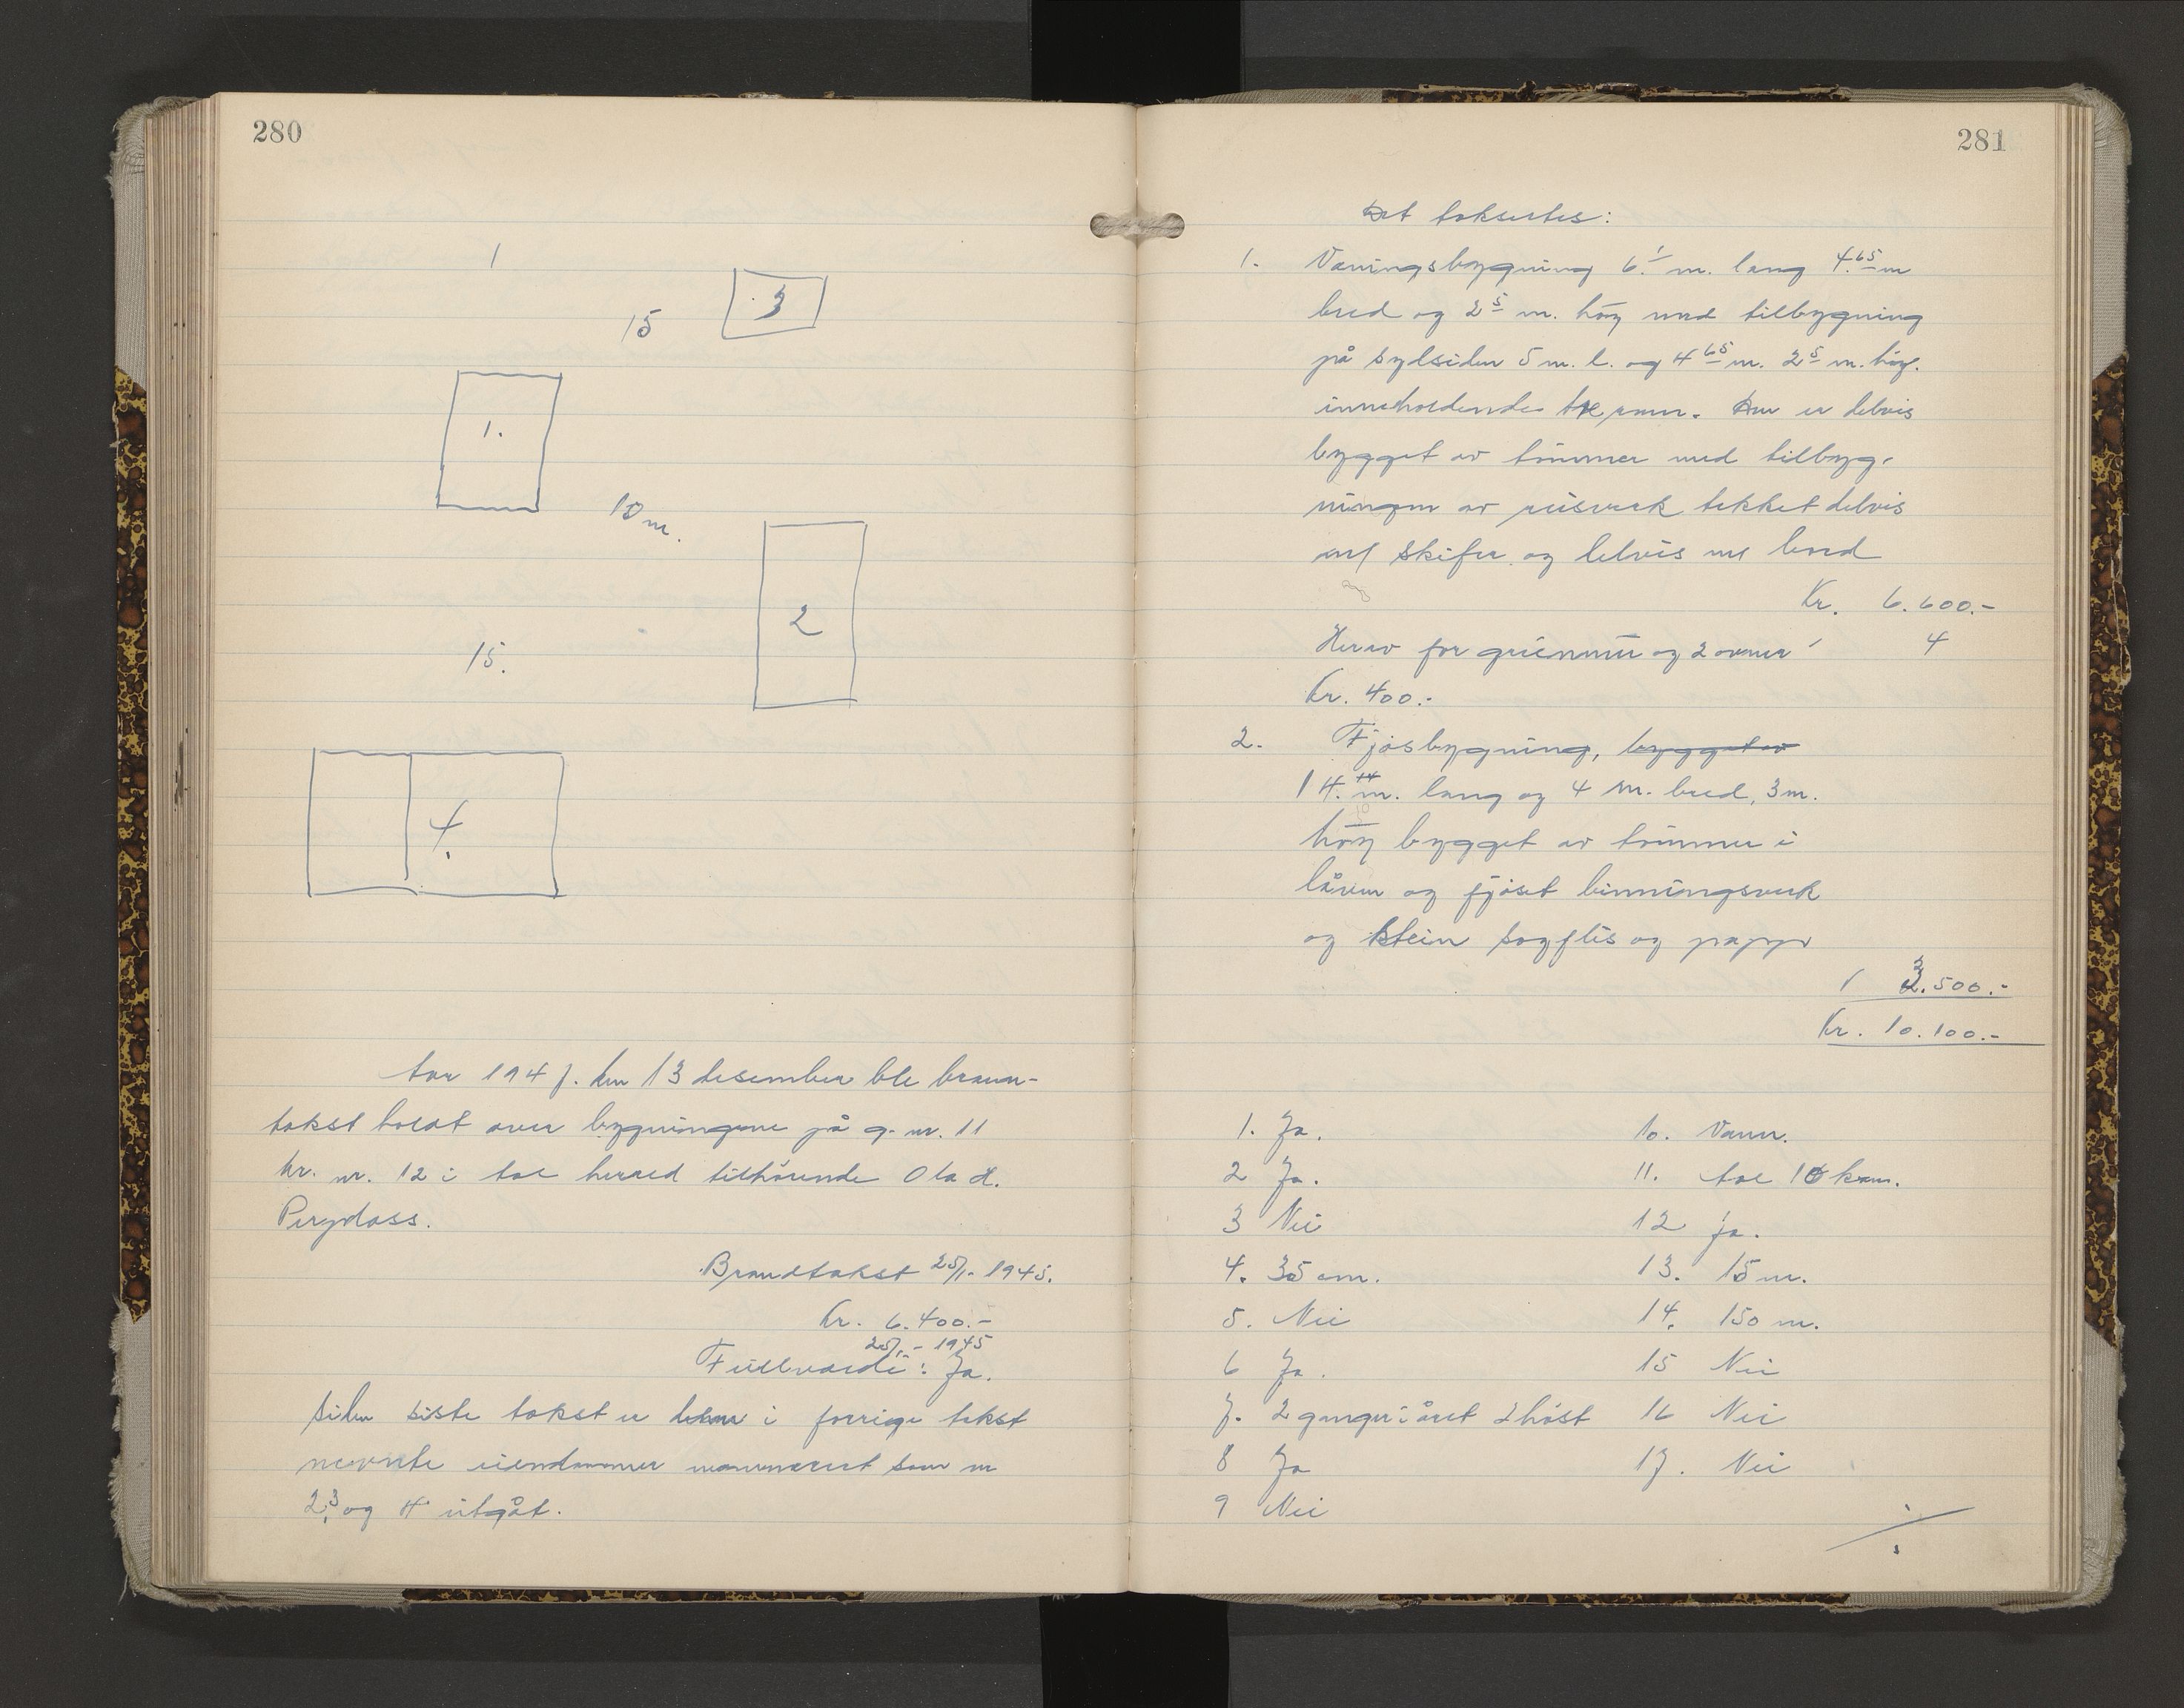 280
1
3
15
1.
10 m.
2
15.
4.
År 1947. den 13 desember ble brann-
takst holdt over bygningene på g. nr. 11
br. nr. 12 i Sør herred tilhörende Ola H.
Brandtakst 25/1- 1945.
Kr. 6.400.-
25/1 - 1945
Fullverdi: Ja.
Siden siste takst er de i forrige takst
nevnte eiendommer som nr
2, 3 og 4 utgåt.
281
Det taksertes:
1. Våningsbygning 6.1 m. lang 4.65 m
bred og 2 5 m. höy med tilbygning
på sydsiden 5 m. l. og 4 65 m. 2 5 m. höy.
inneholdende tre rum. Den er delvis
bygget av tömmer med tilbyg-
ningen av reisverk tekket delvis
m/ skifer og delvis m/ bord
Kr. 6.600.-
Herav for grunnmur og 2 ovner
4
Kr. 400.-
2. Fjösbygning, bygget av
14. m. lang og 4 m. bred, 3 m.
höy bygget av tömmer i
låven og fjöset binningsverk
og stein sagflis og papp
3.500.-
Kr. 10.100.-
1. Ja.
2 Ja.
3 Nei
4. 35 cm.
5. Nei
6 Ja.
7. 2 ganger i året 2 höst
8 Ja
9 Nei
10. Vann.
11. 10 km.
12 Ja.
13. 15 m.
14. 150 m.
15 Nei
16 Nei
17. Nei